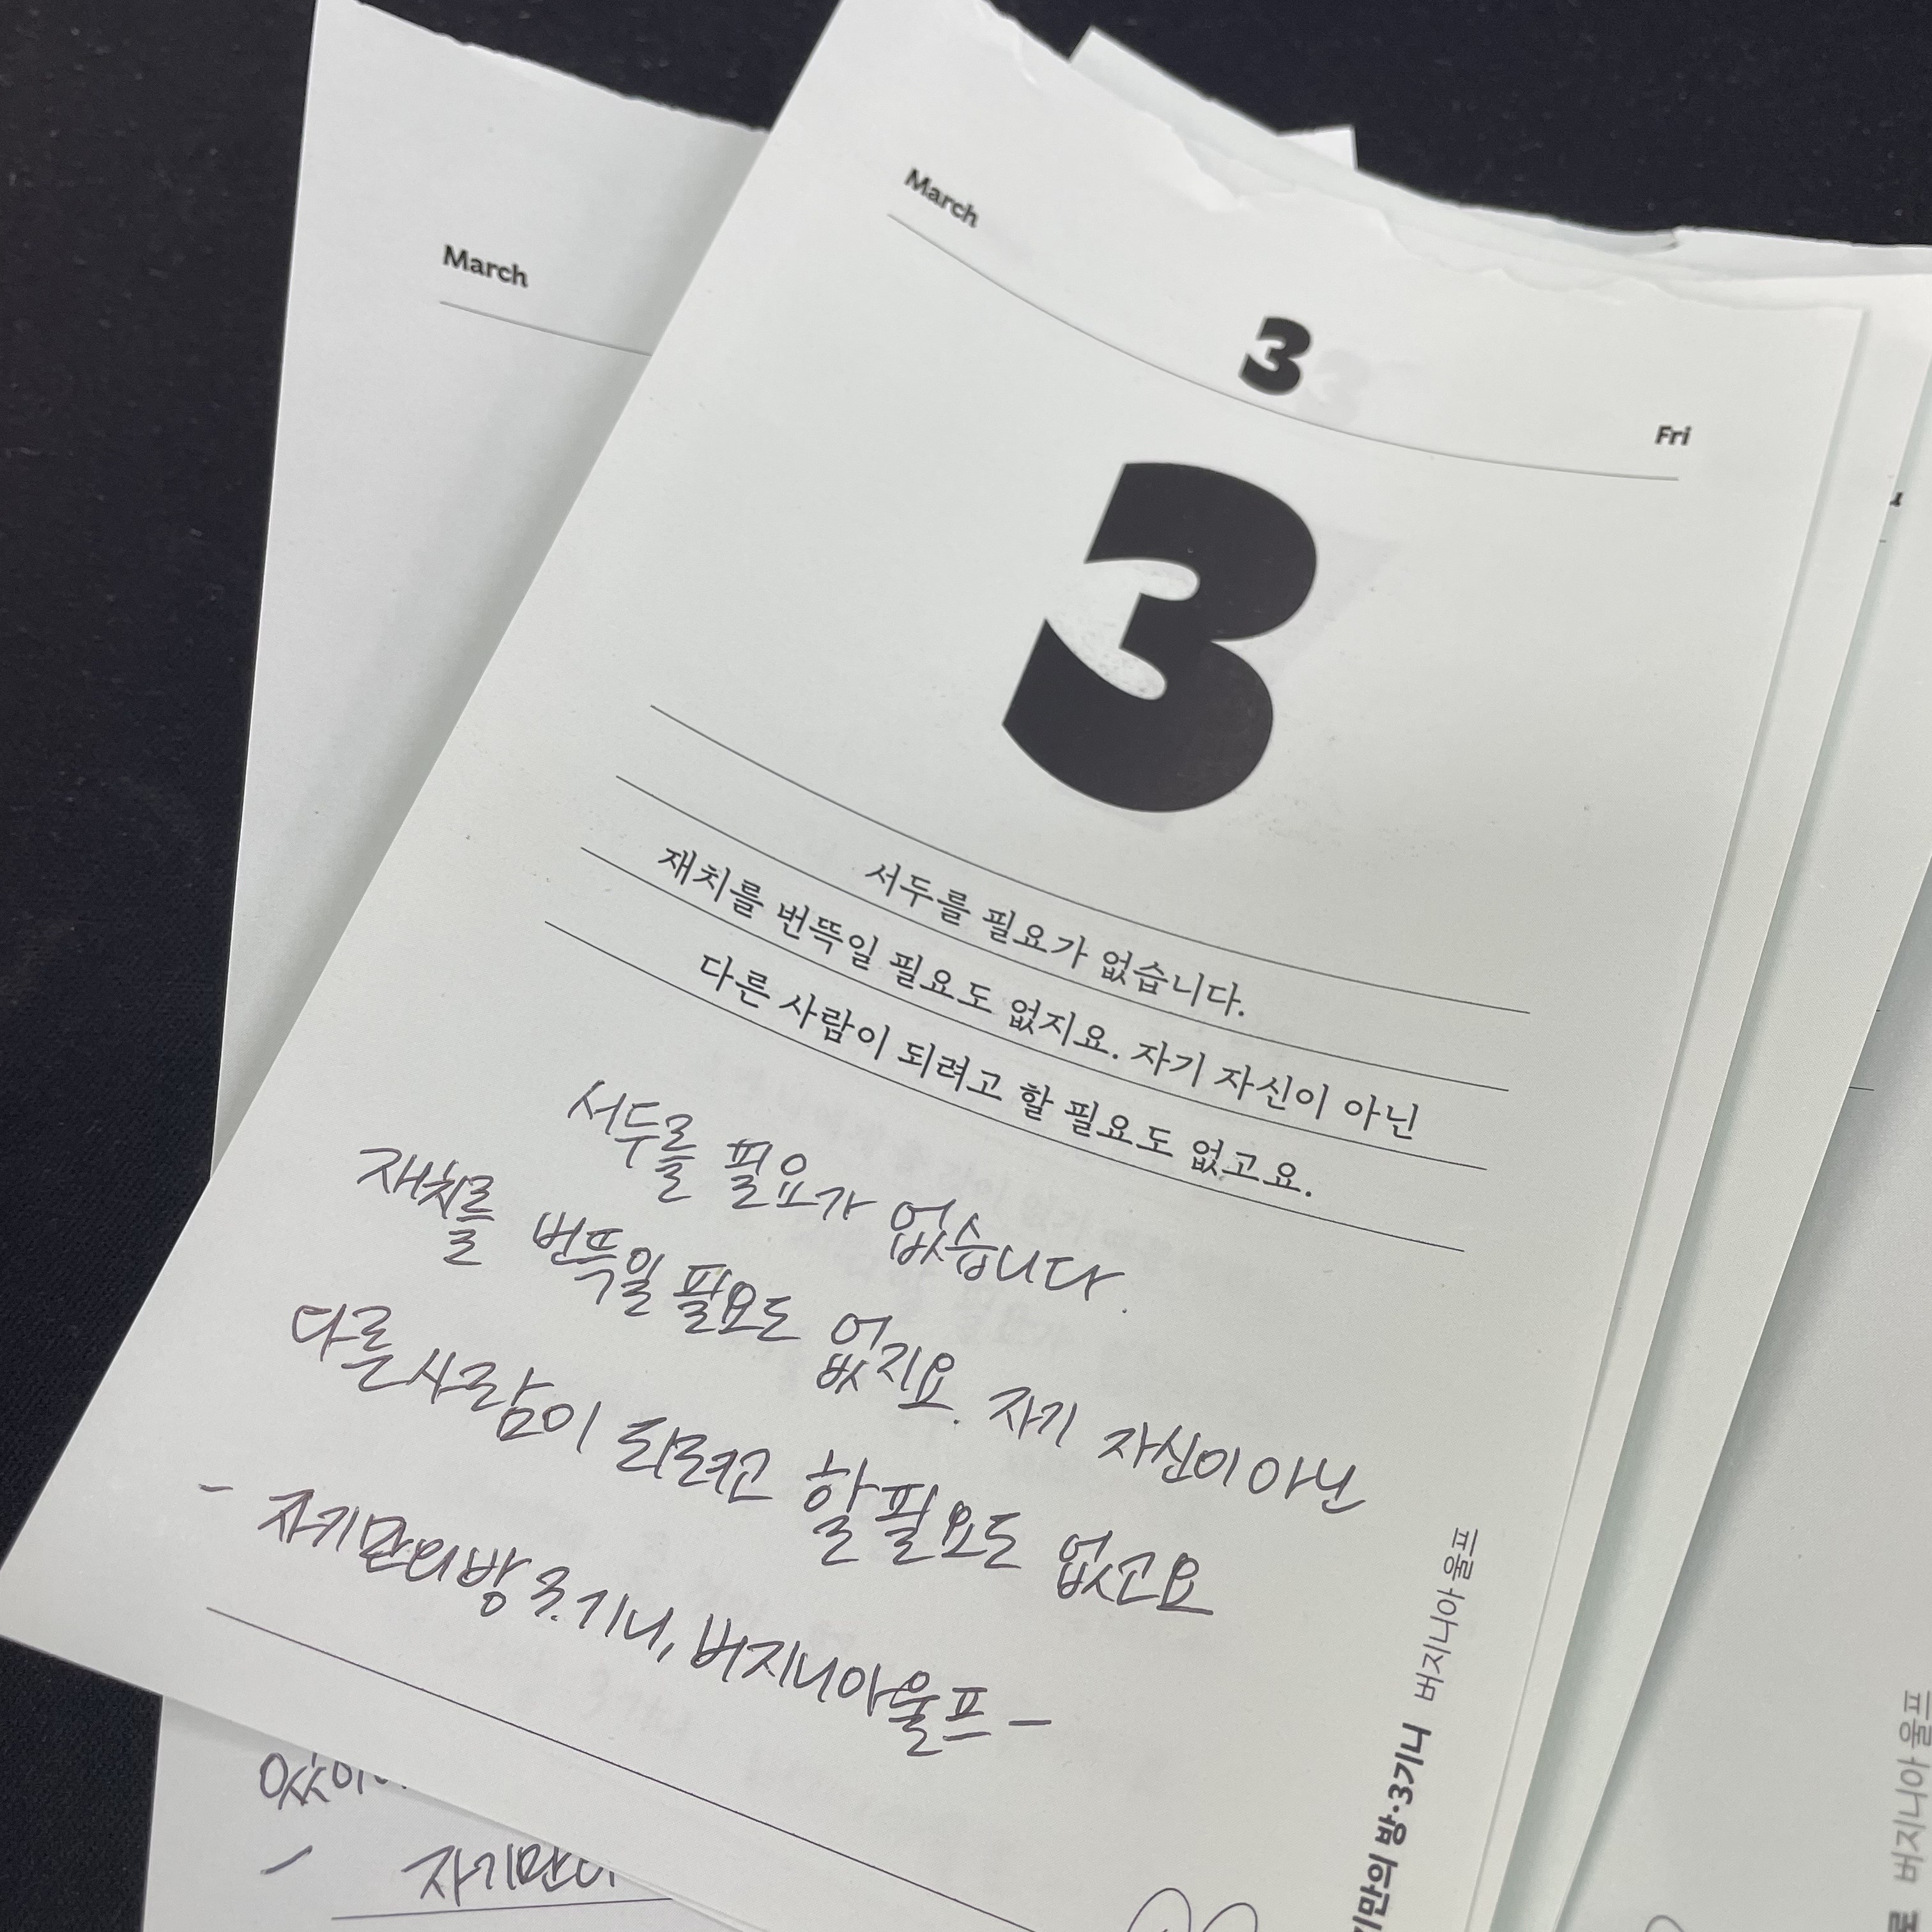 March
March
3
Fri
3
서두를 필요가 없습니다.
재치를 번뜩일 필요도 없지요. 자기 자신이 아닌
다른 사람이 되려고 할 필요도 없고요.
서두를 필요가 없습니다.
재치를 번뜩일 필요도 없지요. 자기 자신이 아닌
다른 사람이 되려고 할 필요도 없고요
- 자기만의 방 3.기니, 버지니아 울프 -
기만의 방·3기니 버지니아 울프
버지니아 울프
- 자기만의